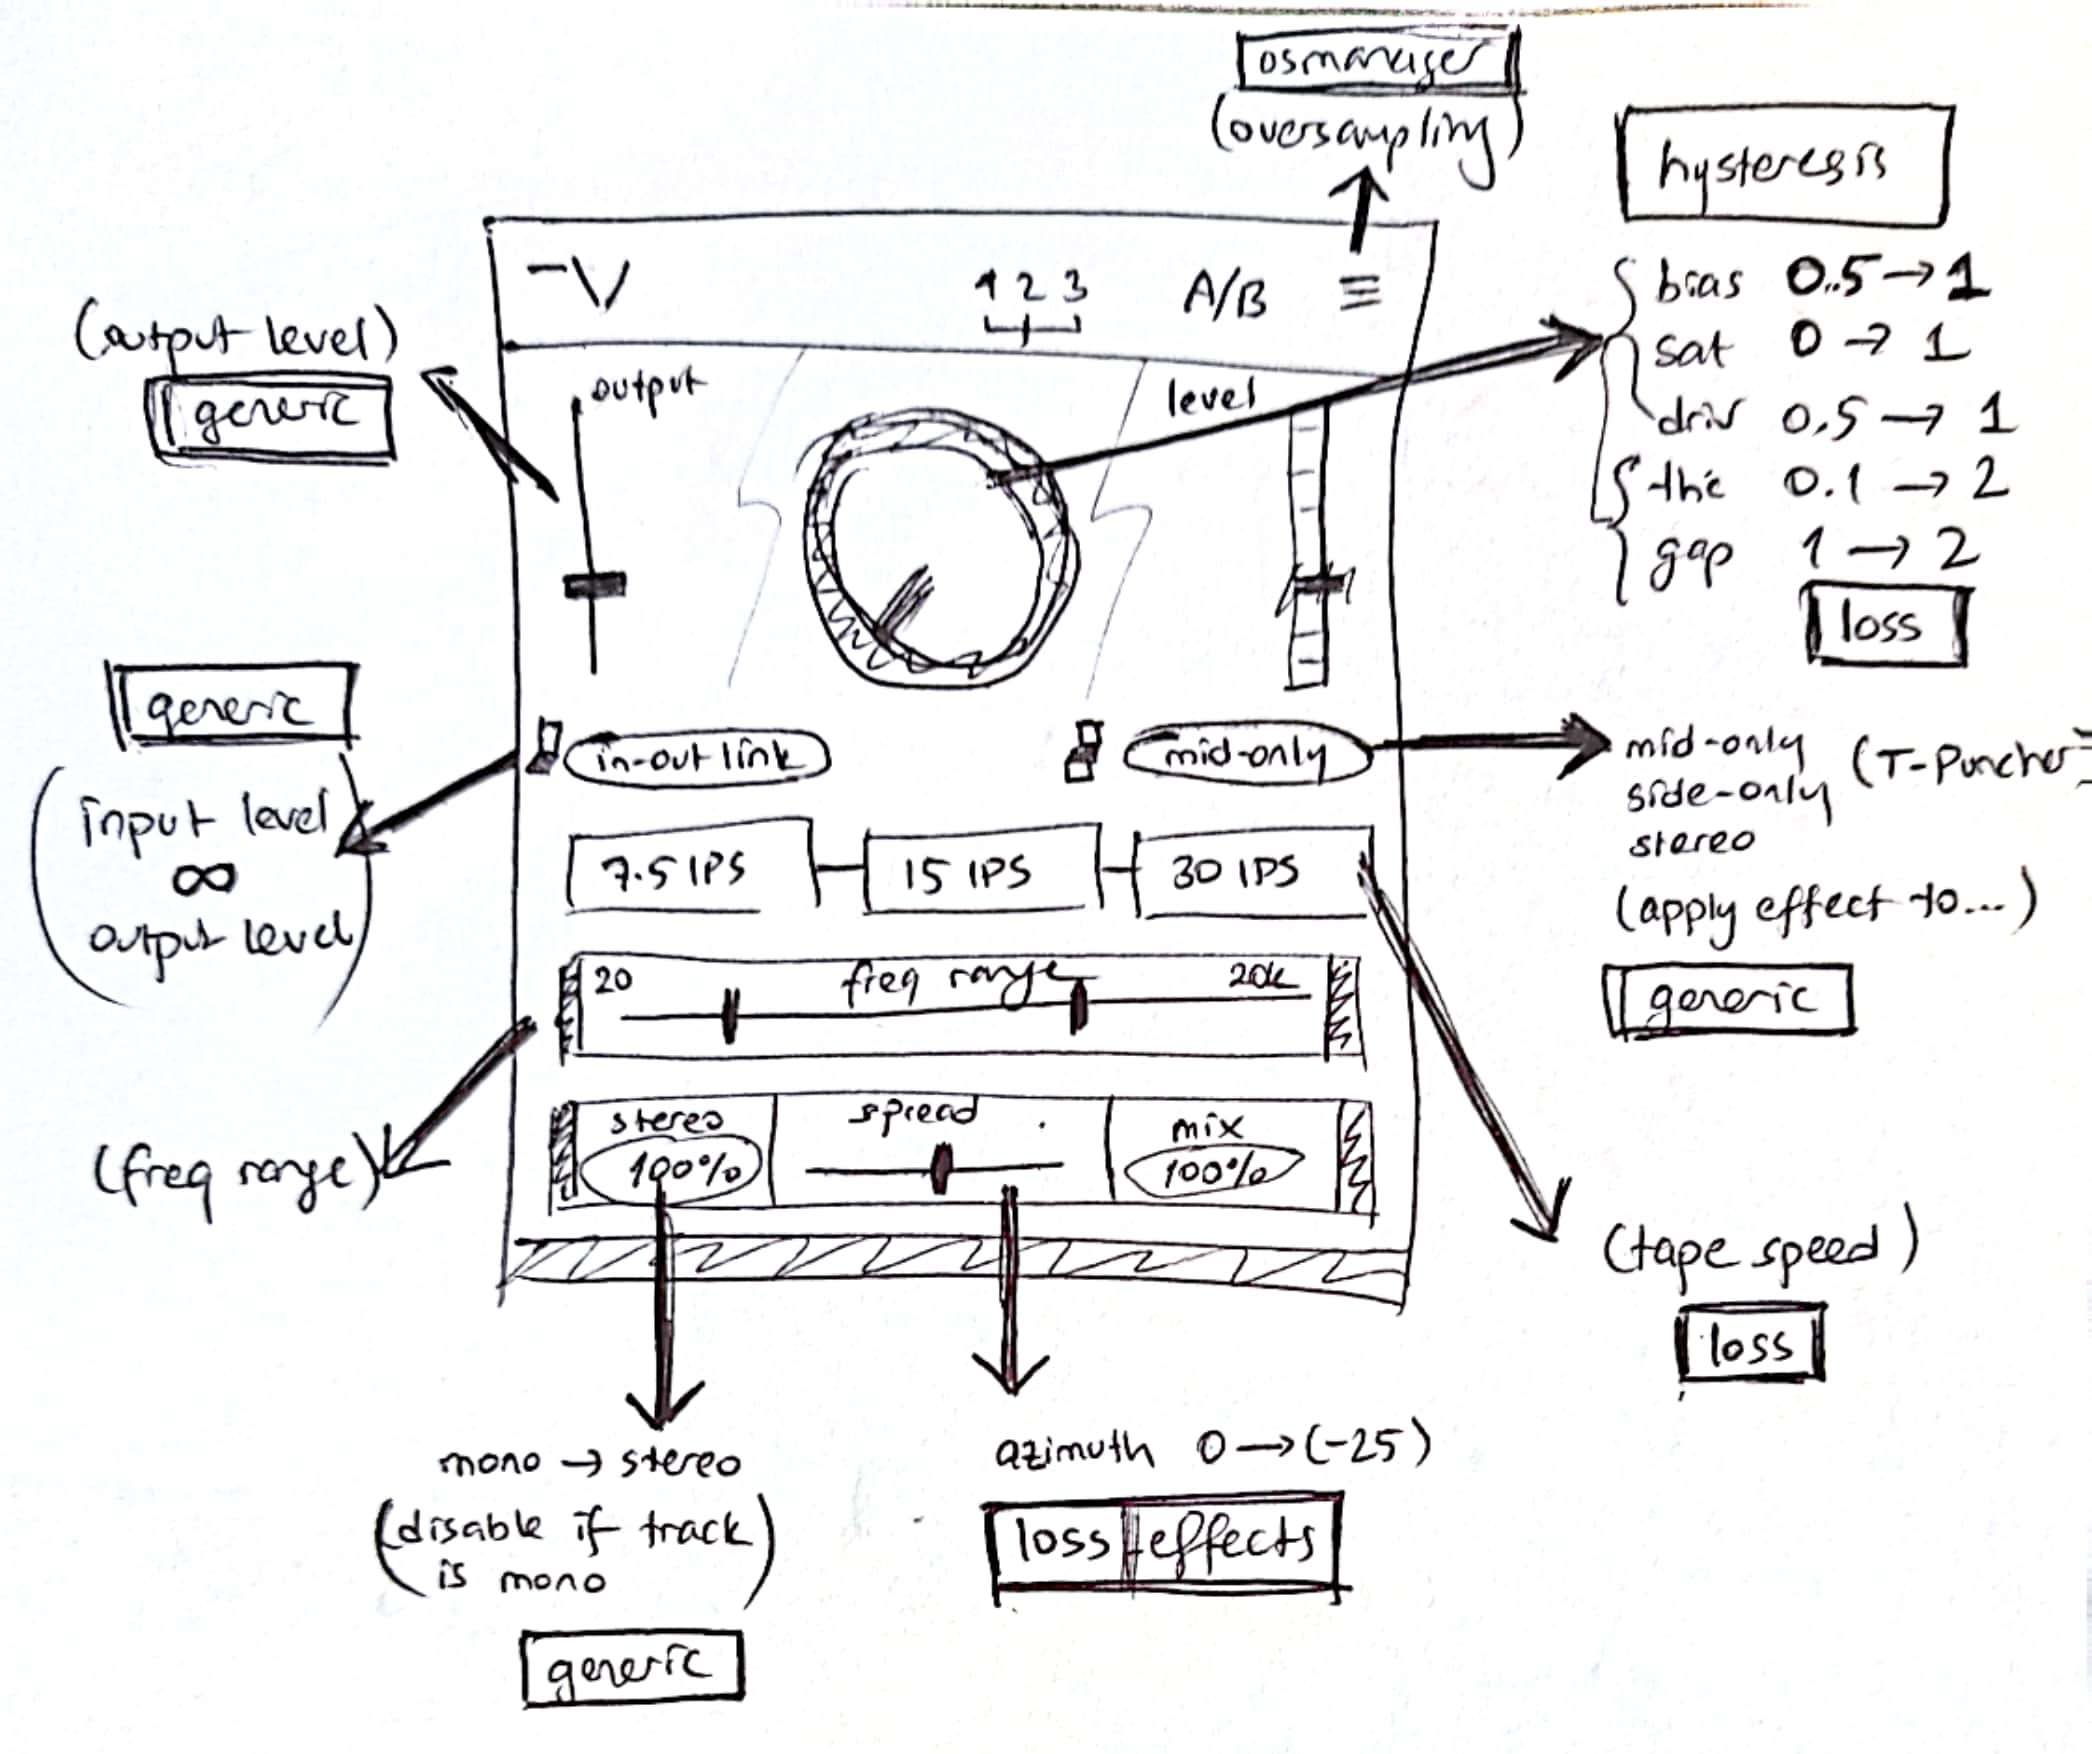 osmanager
(oversampling)
hysteresis
bias 0.5→1
sat 0→1
driv 0.5→1
thic 0.1→2
gap 1→2
loss
1 2 3
A/B
(output level)
generic
output
level
generic
(input level
∞
output level)
in-out link
mid-only
mid-only (T-Puncher
side-only
stereo
(apply effect to...)
generic
7.5 IPS
15 IPS
30 IPS
20 freq range 20k
(freq range)
stereo
100%
spread
mix
100%
(tape speed)
loss
mono → stereo
(disable if track
is mono)
generic
azimuth 0→(-25)
loss effects